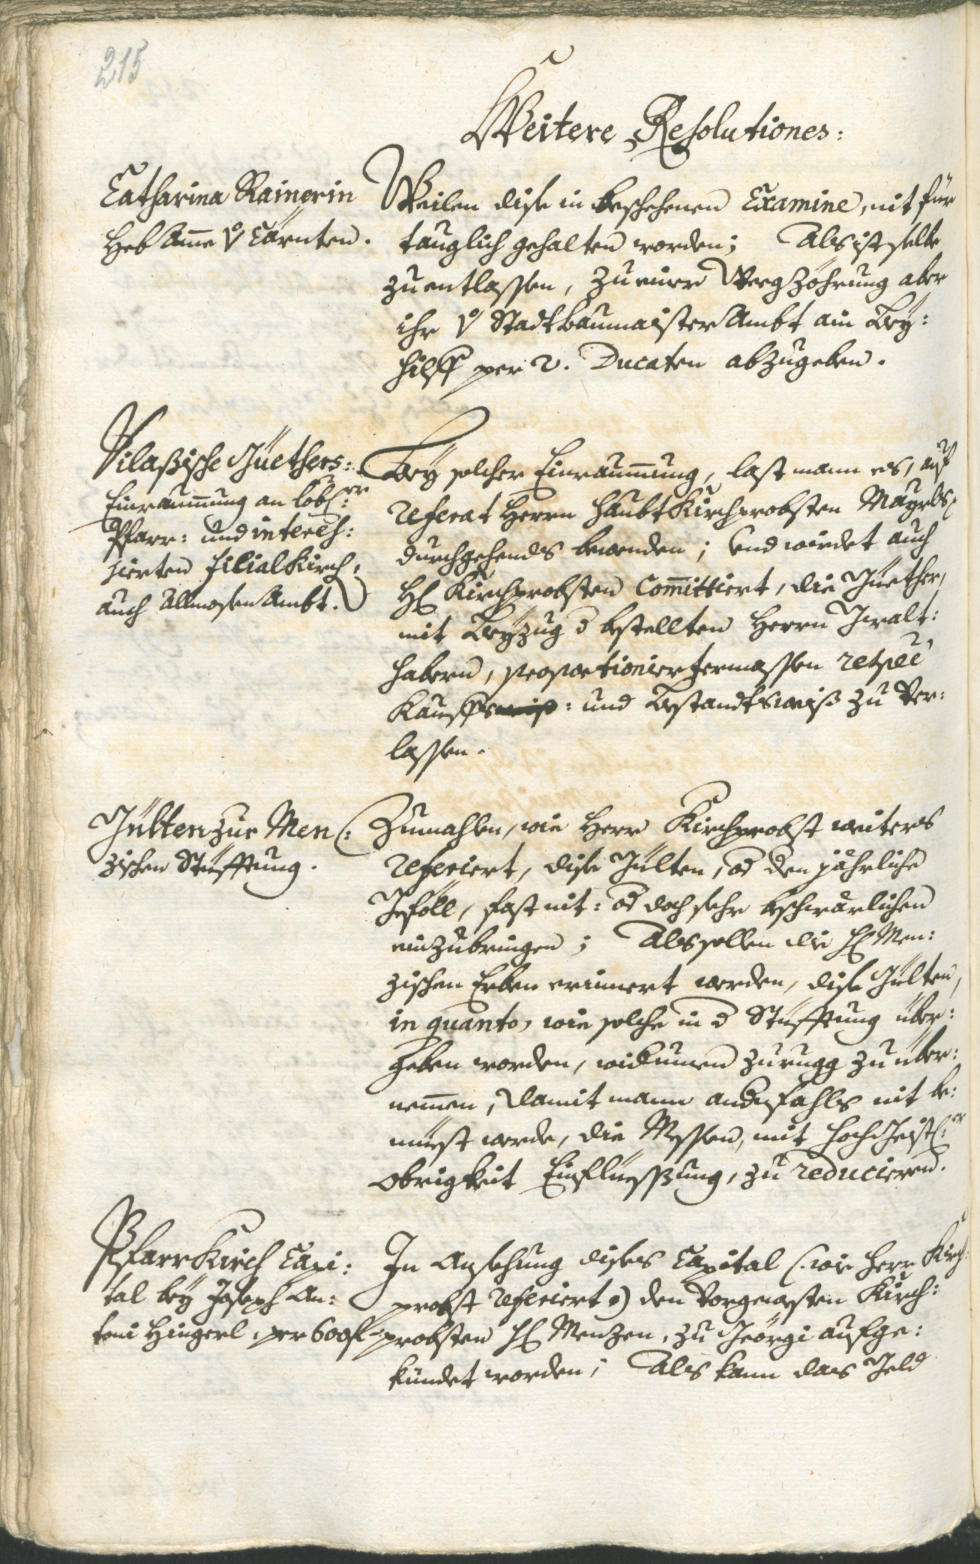 215
Weitere Resolutiones:
Catharina Rainerin
Heb Ame V Cärnten.
Weilen dise in beschehenen Examine, nit für
tauglich gehalten worden; Als ist selbe
zu entlassen, zu einer Wegzöhrung aber
ihr V Stadtbaumaister Ambt ain Bey:
hilff per 2. Ducaten abzugeben.
Vilaßische Güethers:
Einraumung an lobl:
Pfarr: und interess:
sierten filialkirch,
auch Allmosen Ambt.
Bey solcher Einraumung, last mann es, auf
referat Herrn Haubt Kirchprobsten Mayrls,
durchgehends bewenden; und wirdet auch
H: Kirchprobsten Committiert, die Güether,
mit Beyzug d bstellten Herrn Gwalt:
habern, proportioniertermassen respec
Kauffs: und Bstandtsweiß zu ver:
lassen.
Gülten zur Men:
zischen Stüfftung.
Zumahlen, wie Herr Kirchprobst weiters
referiert, dise Gülten, od den jährliche
Gföll, fast nit: od doch sehr bschwärlichen
einzubringen; Als sollen die H: Men:
zischen Erben erinnert werden, dise Gülten,
in quanto, wie solche in d Stüfftung über:
geben worden, widumen zurugg zu über:
nemen, damit mann andrsfahls nit be:
müest werde, die Messen, mit Hoch Geistl:
Obrigkeit Einfliessung, zu reducieren.
PfarrKirch Capi:
tal bey Joseph An:
toni Hingerl, per 600 fl
In Ansehung dises Capital (: wie Herr Kirch:
probst referiert :) den vorgewesten Kirch:
probsten H: Menzen, zu Geörgi aufge:
kündet worden; Als kann das Geld